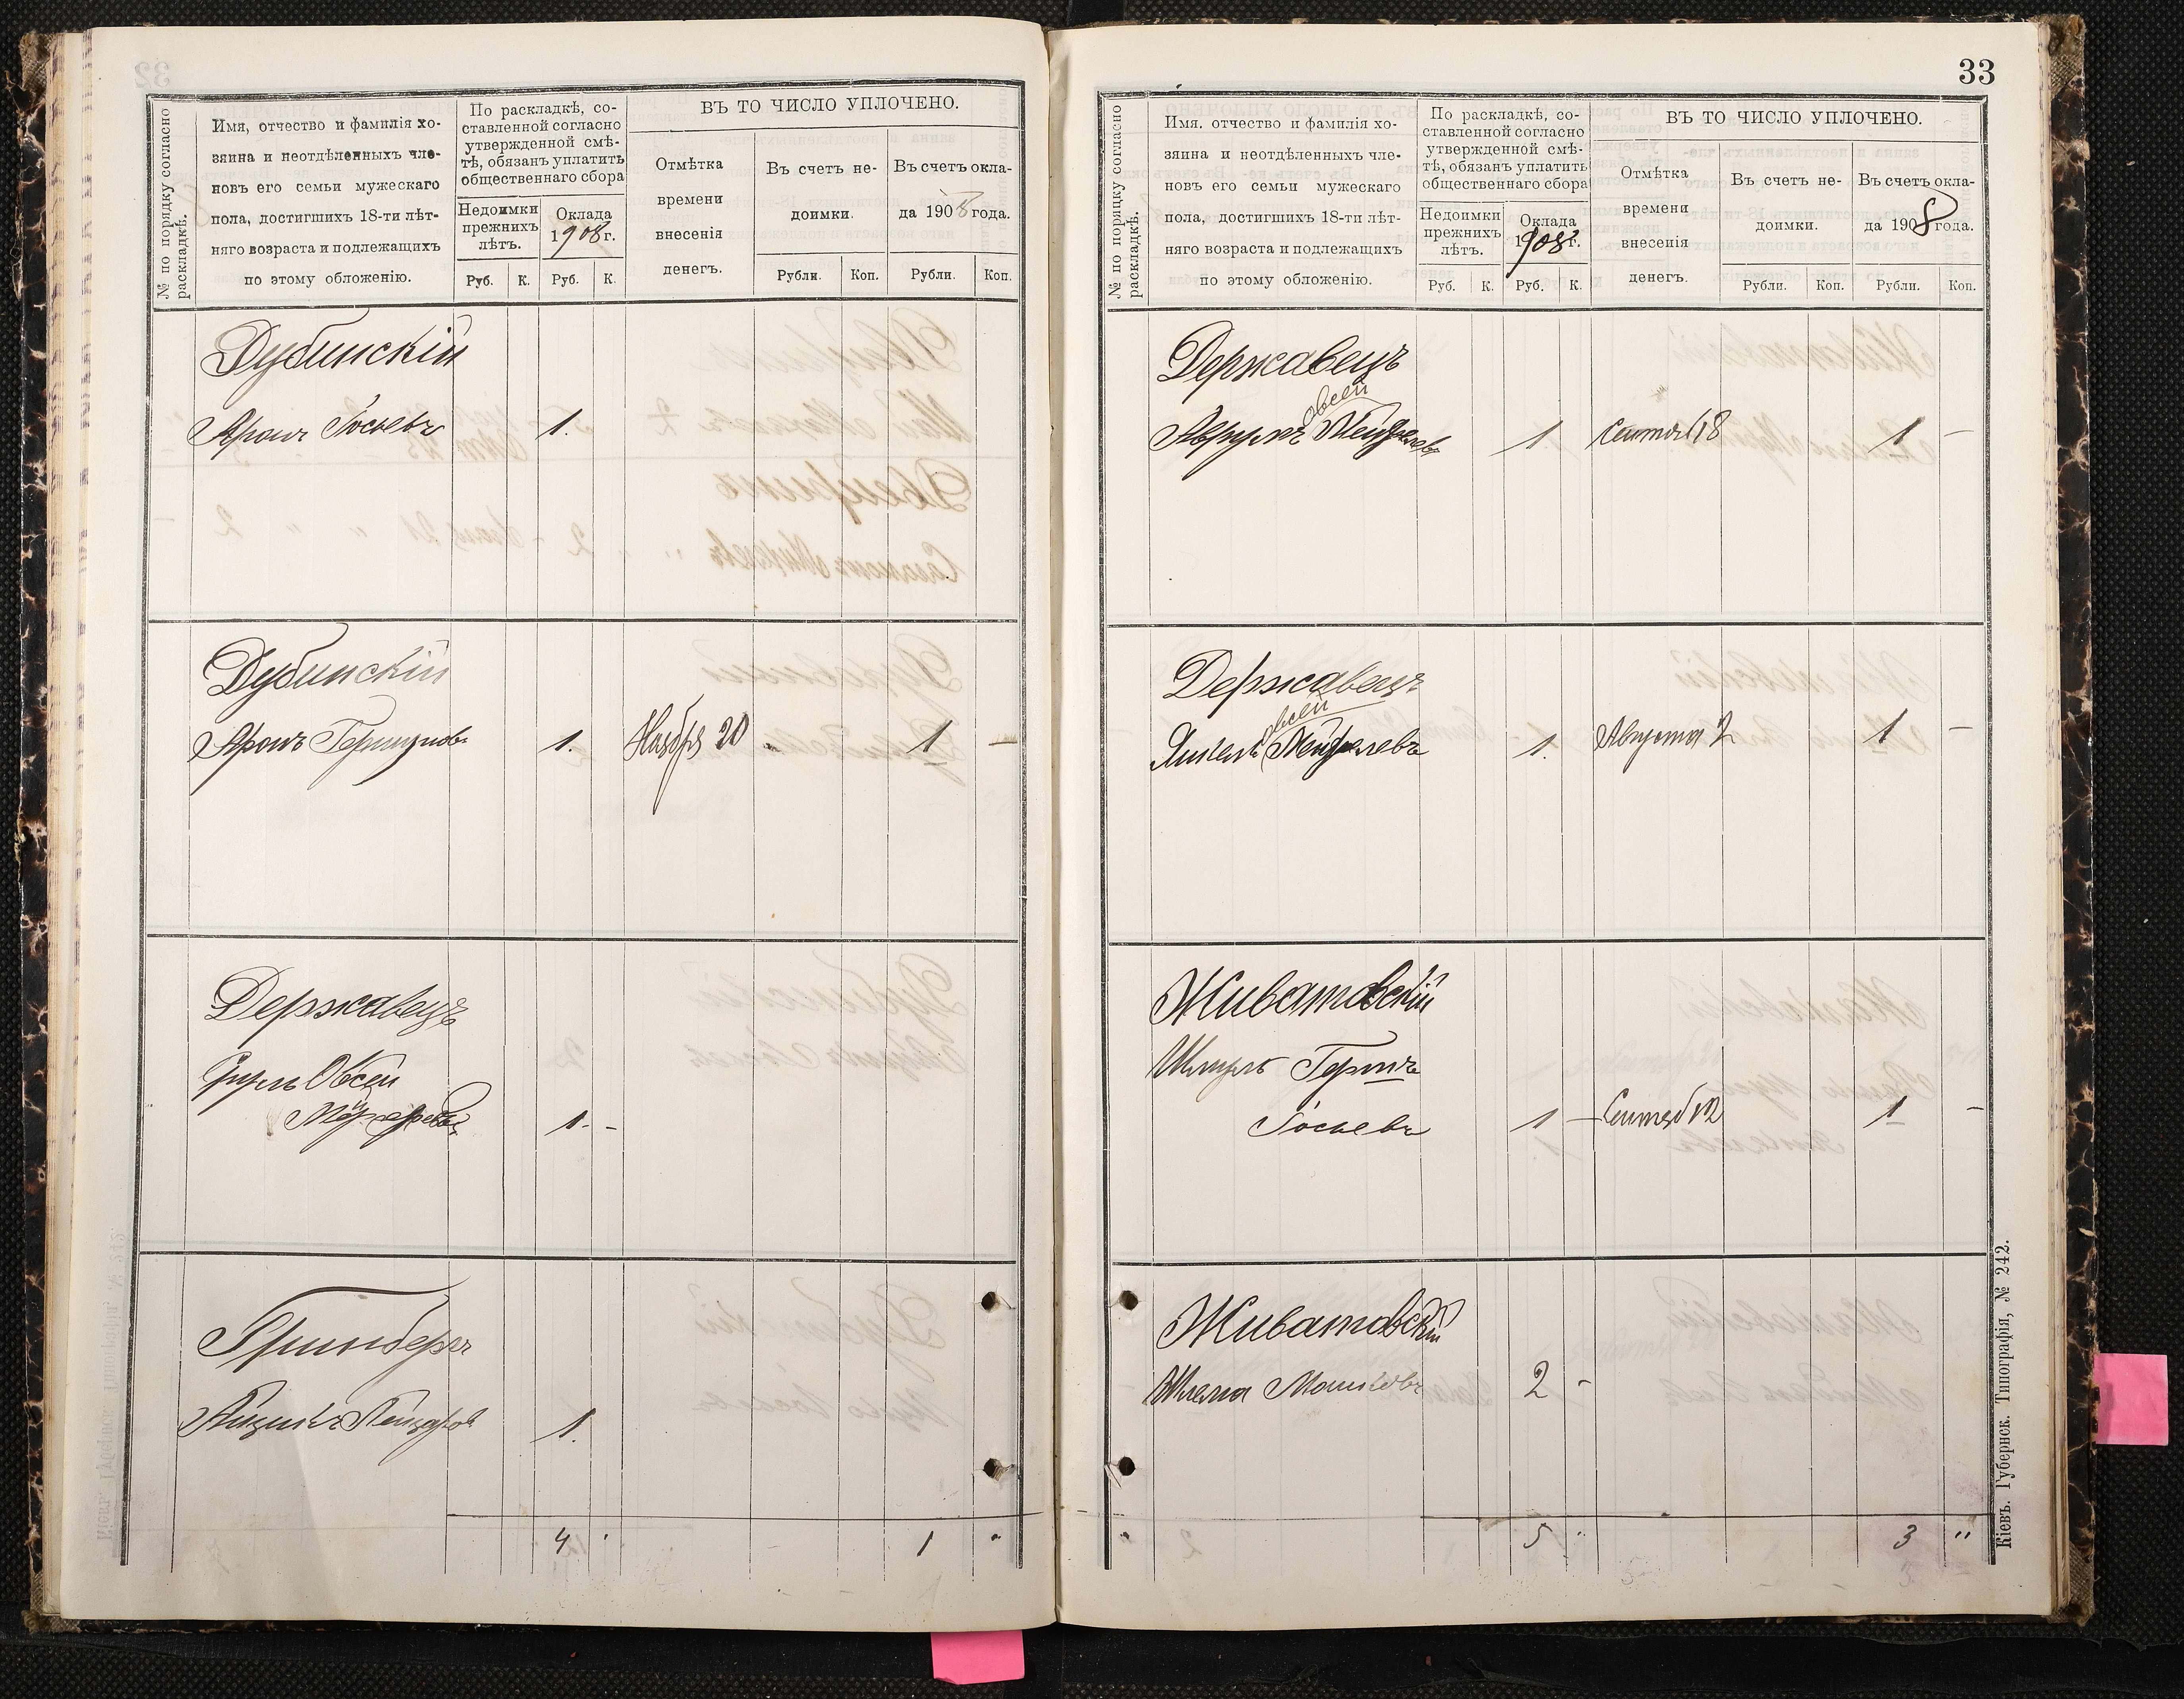 № по порядку согласно раскладкѣ.
Имя, отчество и фамилія хо-
зяина и неотдѣленныхъ чле-
новъ его семьи мужескаго
пола, достигшихъ 18-ти лѣт-
няго возраста и подлежащихъ
по этому обложенію.
По раскладкѣ, со-
ставленной согласно
утвержденной смѣ-
тѣ, обязанъ уплатить
общественнаго сбора
Недоимки
прежнихъ
лѣтъ.
Оклада
1908 г.
Руб. К. Руб. К.
ВЪ ТО ЧИСЛО УПЛОЧЕНО.
Отмѣтка
времени
внесенія
денегъ.
Въ счетъ не-
доимки.
Рубли. Коп.
Въ счетъ окла-
да 1908 года.
Рубли. Коп.
Дубинскій
Аронъ Іосьевъ 1.
Дубинскій
Аронъ Гершуновъ 1. Ноября 20 1 —
Державецъ
Сруль Овсей
1. -
Гринберг
Айзикъ Лейзоров 1.
4 1 "
33
№ по порядку согласно раскладкѣ.
Имя, отчество и фамилія хо-
зяина и неотдѣленныхъ чле-
новъ его семьи мужескаго
пола, достигшихъ 18-ти лѣт-
няго возраста и подлежащихъ
по этому обложенію.
По раскладкѣ, со-
ставленной согласно
утвержденной смѣ-
тѣ, обязанъ уплатить
общественнаго сбора
Недоимки
прежнихъ
лѣтъ.
Оклада
1908 г.
Руб. К. Руб. К.
ВЪ ТО ЧИСЛО УПЛОЧЕНО.
Отмѣтка
времени
внесенія
денегъ.
Въ счетъ не-
доимки.
Рубли. Коп.
Въ счетъ окла-
да 1908 года.
Рубли. Коп.
Державецъ
овсей
Аврумъ 1 Сентяб 18 1 —
Державецъ
овсей
Янкель 1. Августа 2 1 —
Животовскій
Шмуль Гершъ
Іосьевъ 1 — Сентяб 12 1 —
Животовскій
Шлема Мошковъ 2 -
5 " 3 "
Кіевъ. Губернск. Типографія, № 242.